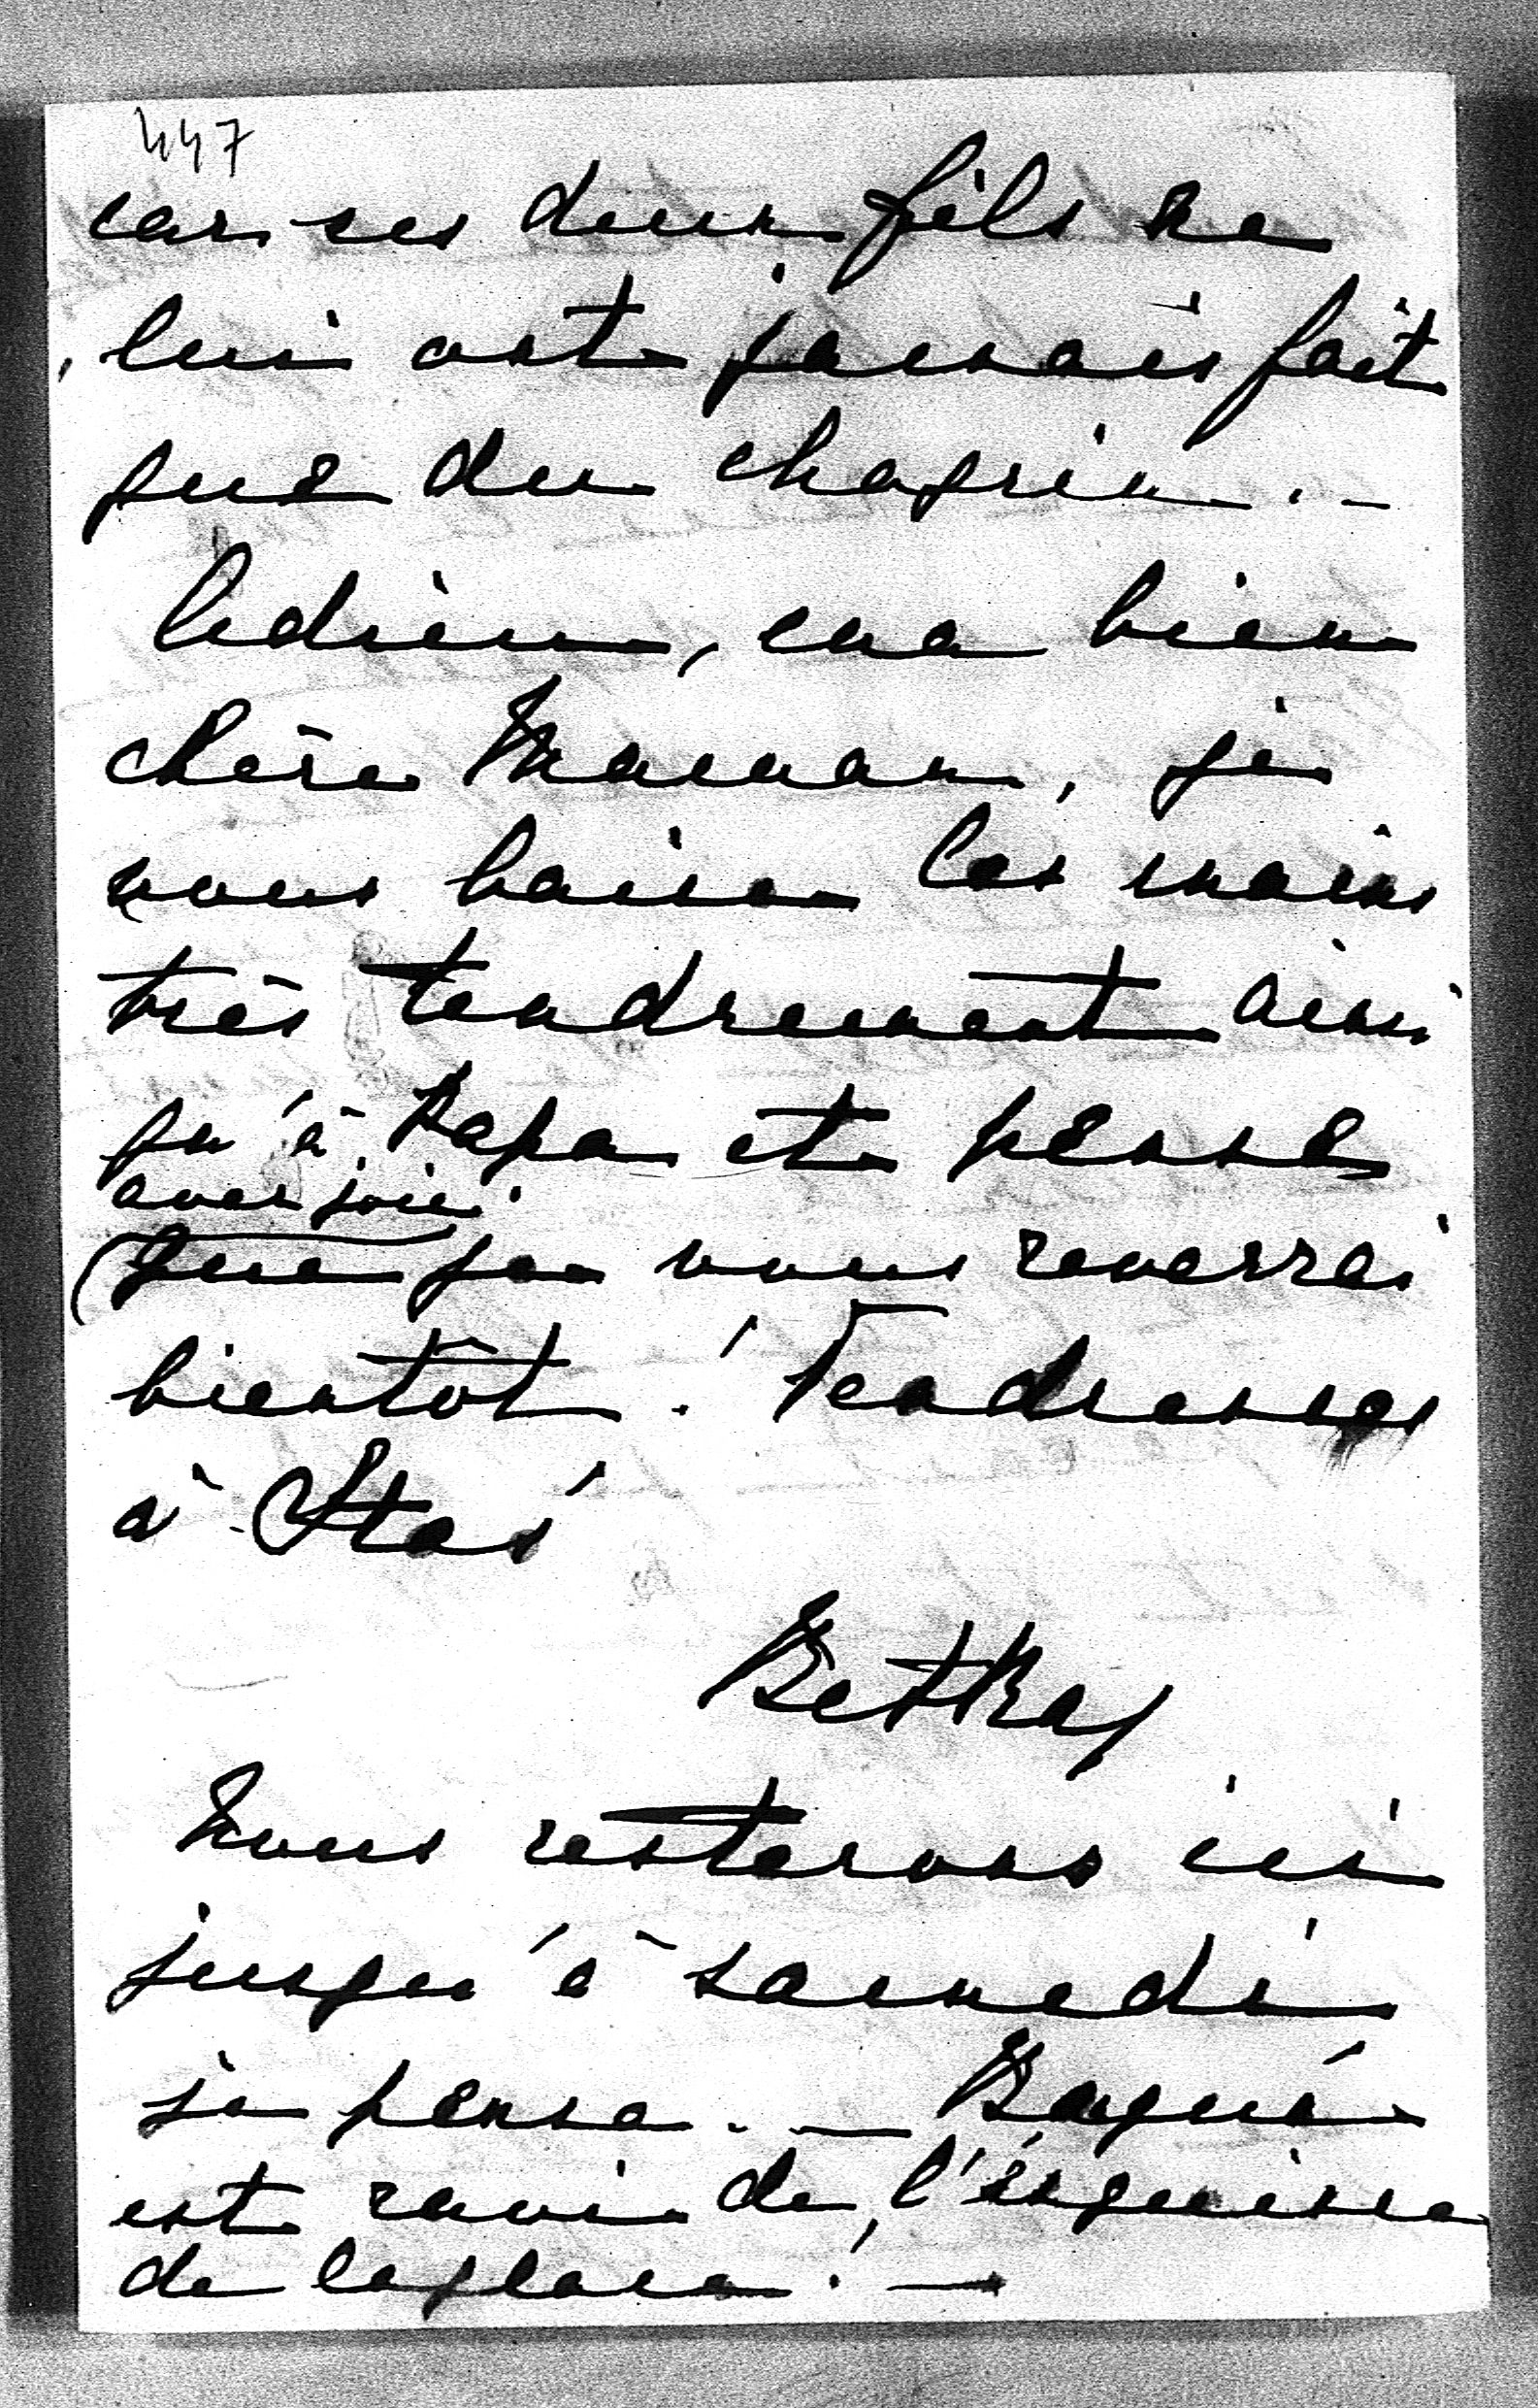 447
car ses deux fils ne
lui ont jamais fait
que du chagrin. -
Adieu, ma bien
chère Maman, je
vous baise les mains
très tendrement ainsi
qu'à Papa et pense
avec joie
que je vous reverrai
bientôt ! Tendresses
à Stas
Nous resterons ici
jusqu'à samedi
je pense. -
est ravi de l'esquisse
de la place ! -